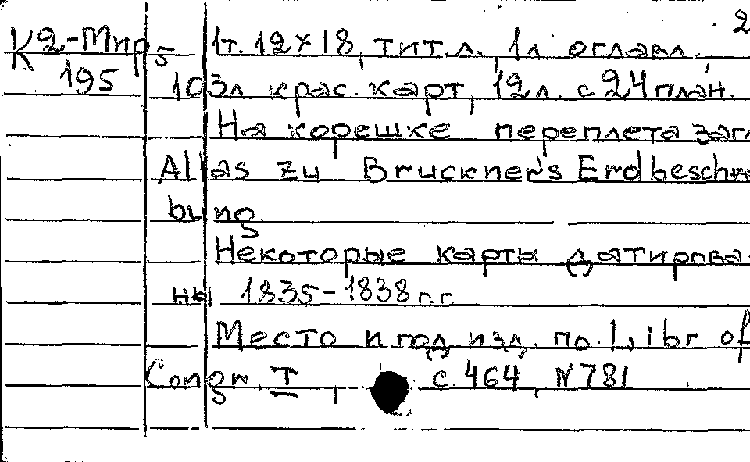 2
К2-Мир 1т. 12×18, тит.л. 1л оглавл.
5
195 103л крас. карт, 12л. с 24 план.
На корешке переплета заг
Atlas zu Bruckner's Erdbeschre
bung
Некоторые карты датирова-
ны 1835-1838 г.г.
Место и год изд. по Libr of
Congr. T , с. 464, N 781